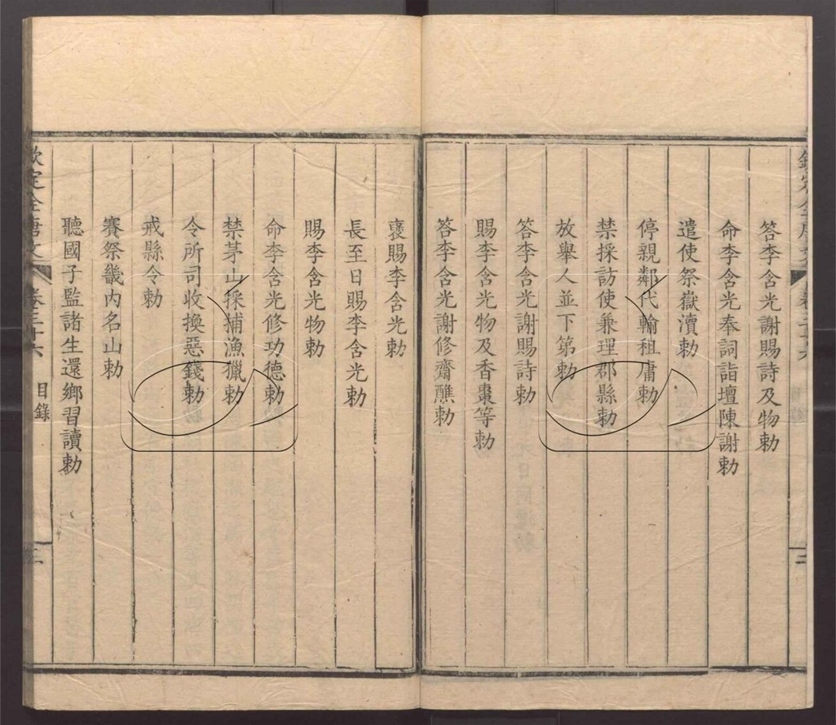 答李含光謝賜詩及物勅
命李含光奉詞詣壇陳謝勅
遣使祭嶽瀆勅
停親鄰代輸租庸勅
禁採訪使兼理郡縣勅
放舉人並下第勅
答李含光謝賜詩勅
賜李含光物及香棗等勅
答李含光謝修齋醮勅
褒賜李含光勅
長至日賜李含光勅
賜李含光物勅
命李含光修功德勅
禁茅山採捕漁獵勅
令所司收換惡錢勅
戒縣令勅
賽祭畿內名山勅
聽國子監諸生還鄉習讀勅
欽定全唐文 卷三十六 目錄 三